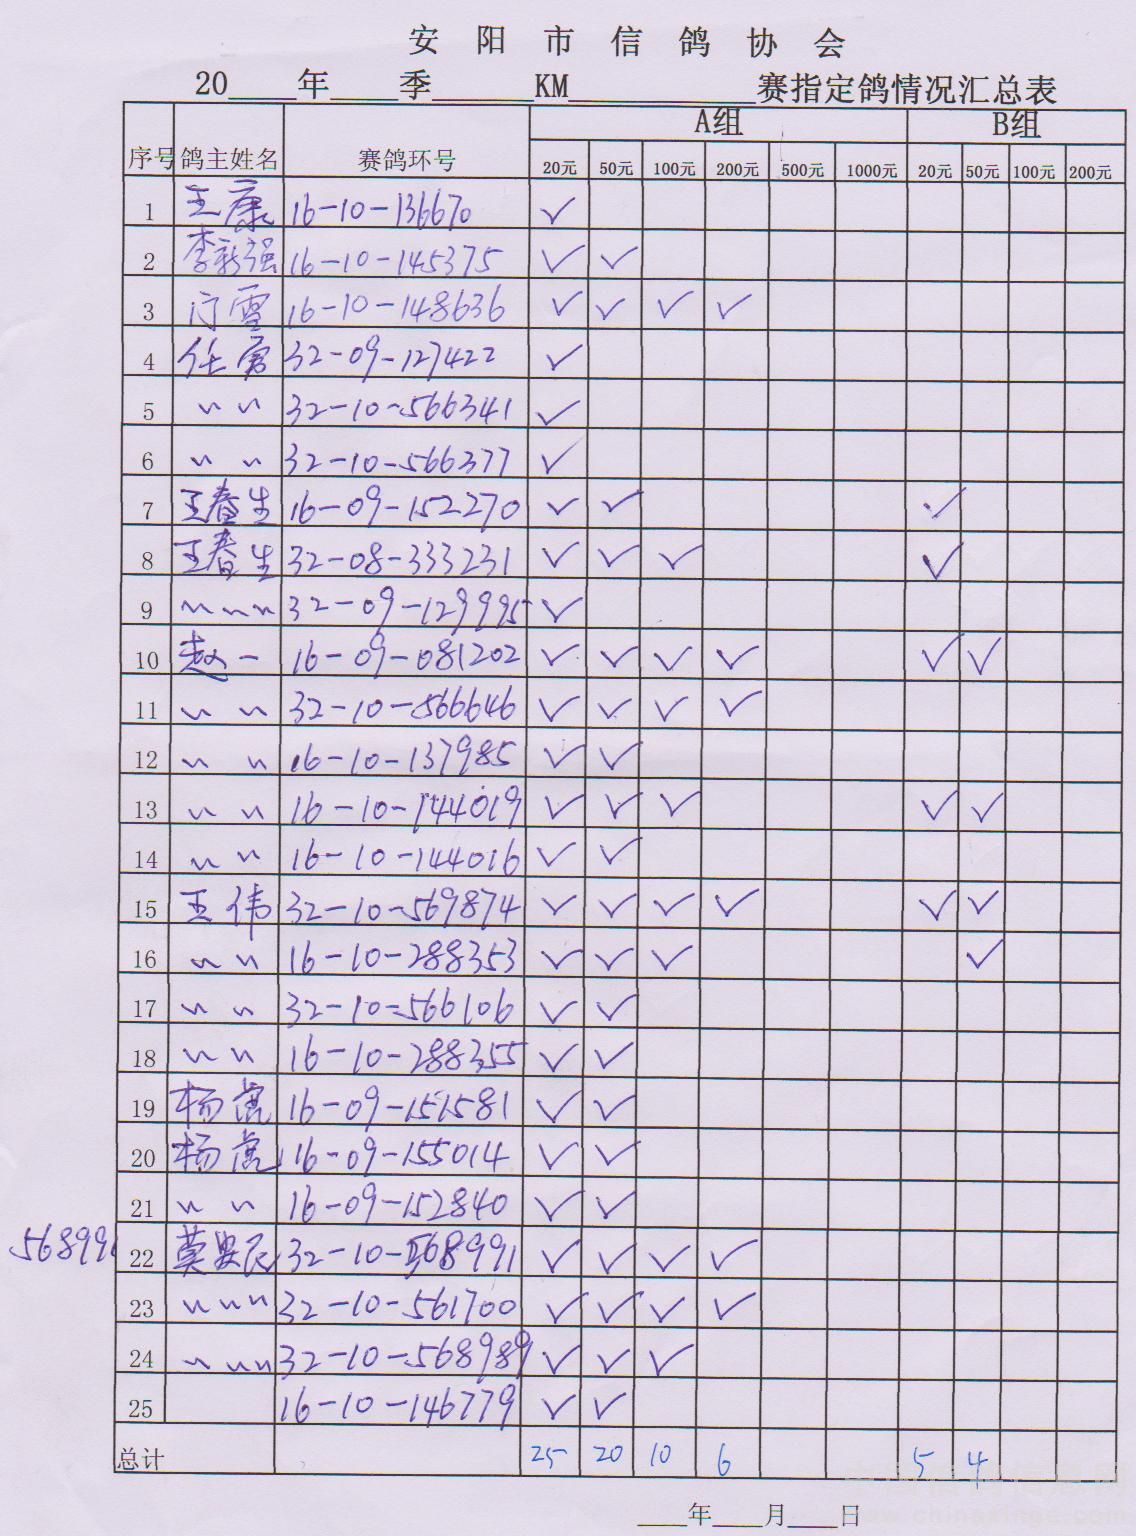 安阳市信鸽协会
20____年____季______KM___________赛指定鸽情况汇总表
A组 B组
序号 鸽主姓名 赛鸽环号 20元 50元 100元 200元 500元 1000元 20元 50元 100元 200元
1 王康 16-10-136670 ✓
2 李新强 16-10-145375 ✓ ✓
3 闫雪 16-10-148636 ✓ ✓ ✓ ✓
4 任宾 32-09-127422 ✓
5 〃 〃 32-10-566341 ✓
6 〃 〃 32-10-566377 ✓
7 王春生 16-09-152270 ✓ ✓ ✓
8 王春生 32-08-333231 ✓ ✓ ✓ ✓
9 〃 〃 〃 32-09-129995 ✓
10 赵一 16-09-081202 ✓ ✓ ✓ ✓ ✓ ✓
11 〃 〃 32-10-566646 ✓ ✓ ✓ ✓
12 〃 〃 16-10-137985 ✓ ✓
13 〃 〃 16-10-144019 ✓ ✓ ✓ ✓ ✓
14 〃 〃 16-10-144016 ✓ ✓
15 王伟 32-10-569874 ✓ ✓ ✓ ✓ ✓ ✓
16 〃 〃 16-10-288353 ✓ ✓ ✓ ✓
17 〃 〃 32-10-566106 ✓ ✓
18 〃 〃 16-10-288355 ✓ ✓
19 杨嵩 16-09-151581 ✓ ✓
20 杨嵩 16-09-155014 ✓ ✓
21 〃 〃 16-09-152840 ✓ ✓
568991 22 莫安民 32-10-568991 ✓ ✓ ✓ ✓
23 〃 〃 〃 32-10-561700 ✓ ✓ ✓ ✓
24 〃 〃 〃 32-10-568989 ✓ ✓ ✓
25 16-10-146779 ✓ ✓
总计 25 20 10 6 5 4
____年____月____日